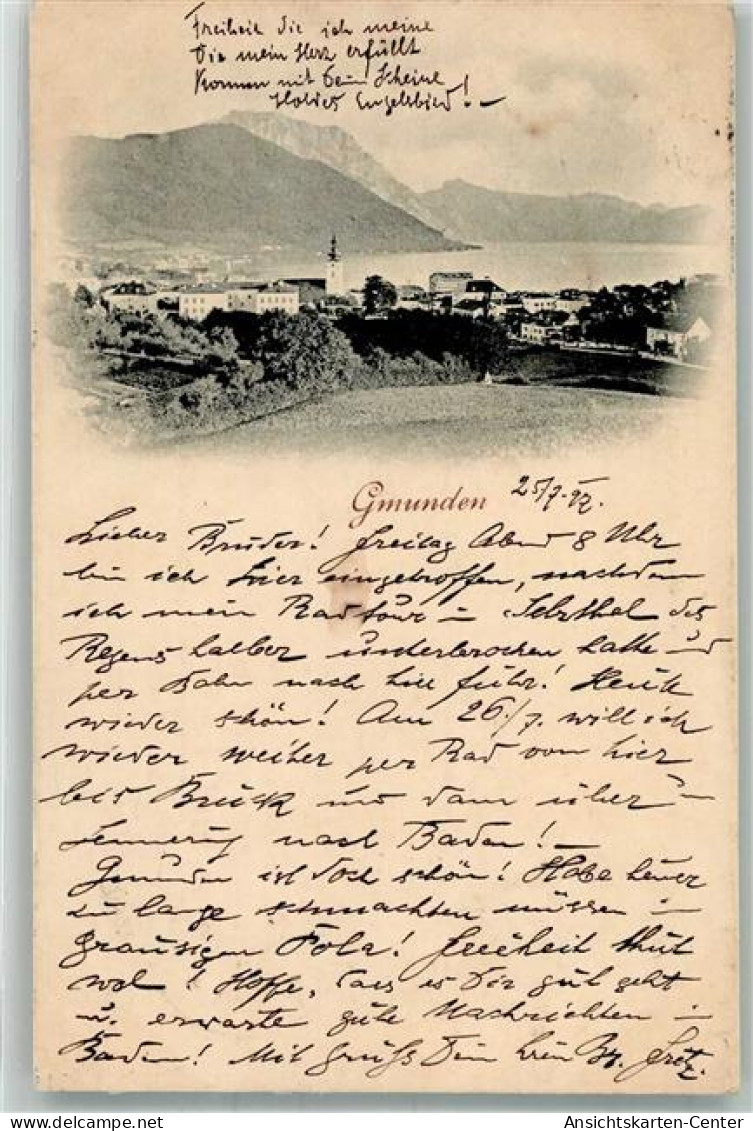 Freiheit die ich meine
Die mein Herz erfüllt
Komm mit Deinem Scheine
Holdes Engelsbild! —
Gmunden
25/7. 97.
Lieber Bruder! Freitag Abend 8 Uhr
bin ich hier eingetroffen, nachdem
ich meine Radtour in Selzthal des
Regens halber unterbrochen hatte und
per Bahn nach hier fuhr! Heute
wieder schön! Am 26./7. will ich
wieder weiter per Rad von hier
bis Bruck und dann über
Semmering nach Baden! —
Gmunden ist doch schön! Habe heuer
zu lange schmachten müssen in
grausigen Pola! Freiheit thut
wol! Hoffe, dass es Dir gut geht
u. erwarte gute Nachrichten in
Baden! Mit Gruß Dein treuer Br. Fritz.
Ansichtskarten-Center